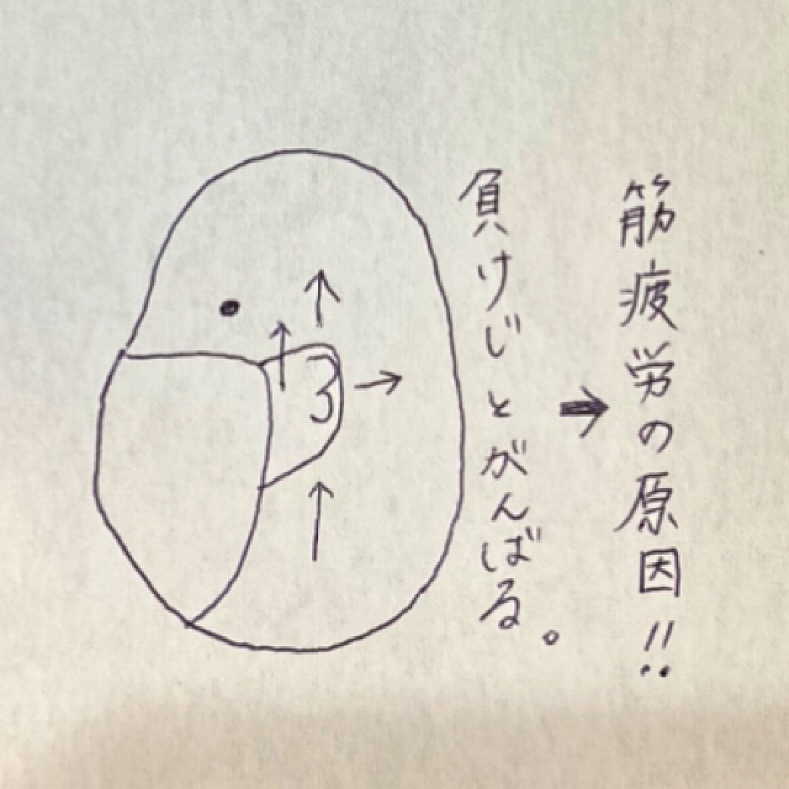 負けじとがんばる。
➡
筋疲労の原因!!